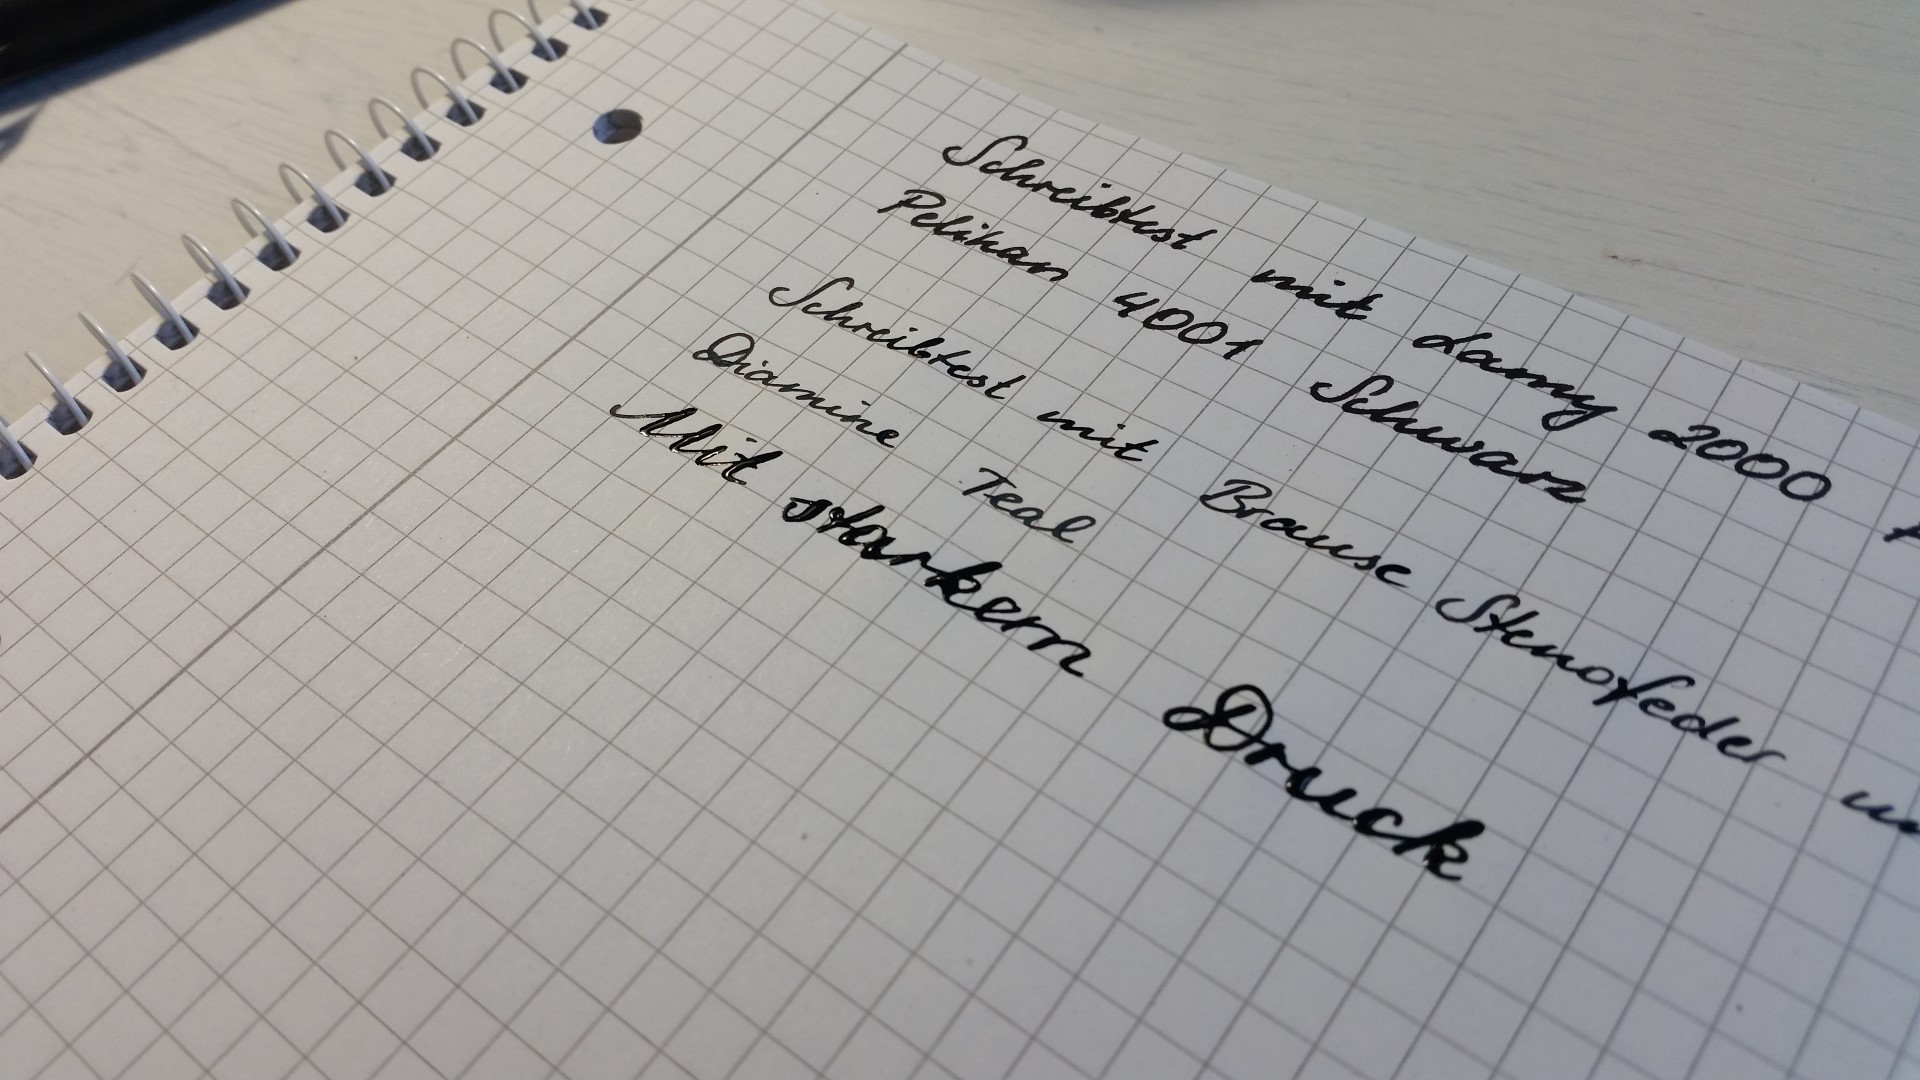 Schreibtest mit Lamy 2000
Pelikan 4001 Schwarz
Schreibtest mit Brause Stenofeder
Diamine Teal
Mit starkem Druck